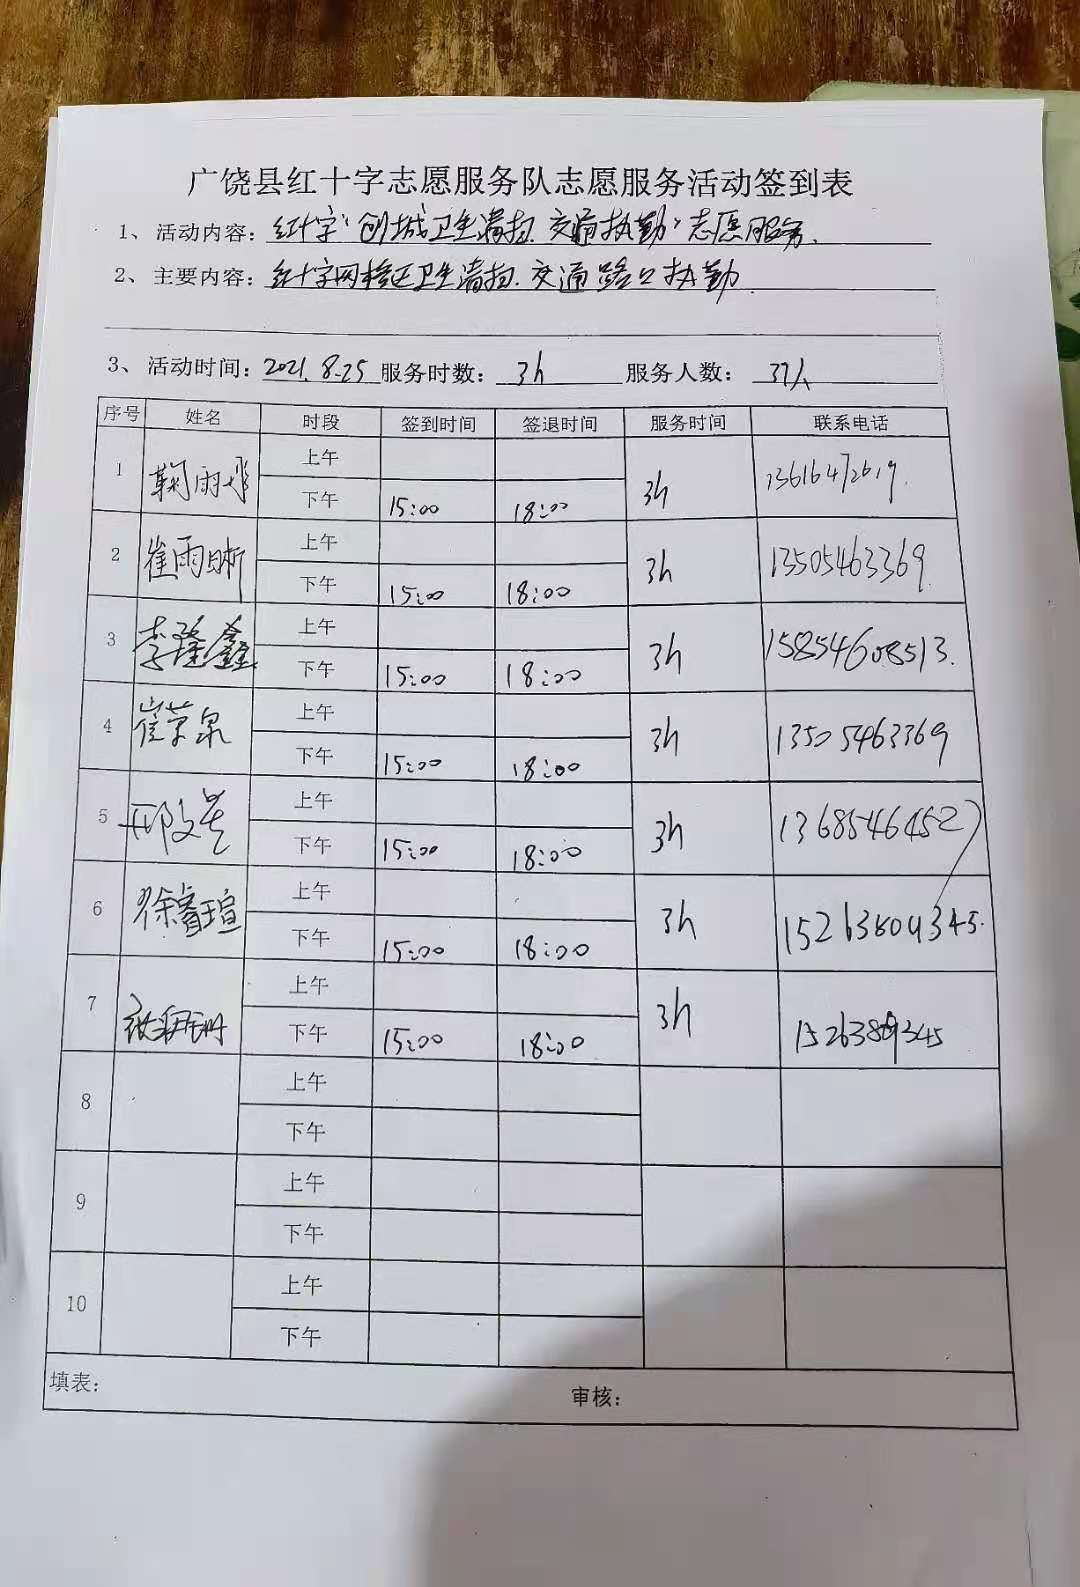 广饶县红十字志愿服务队志愿服务活动签到表
1、活动内容：红十字“创城卫生清扫.交通执勤”志愿服务.
2、主要内容：红十字网格区卫生清扫.交通路口执勤
3、活动时间：2021.8.25 服务时数：3h 服务人数：37人
序号 姓名 时段 签到时间 签退时间 服务时间 联系电话
1 鞠雨彤 上午 3h 13616472619.
下午 15:00 18:00
2 崔雨晰 上午 3h 13505463369
下午 15:00 18:00
3 李隆鑫 上午 3h 15854608513.
下午 15:00 18:00
4 崔荣泉 上午 3h 13505463369
下午 15:00 18:00
5 邢文 上午 3h 13685464527
下午 15:00 18:00
6 徐睿瑄 上午 3h
下午 15:00 18:00
7 上午 3h
下午 15:00 18:00
8 上午
下午
9 上午
下午
10 上午
下午
填表： 审核：